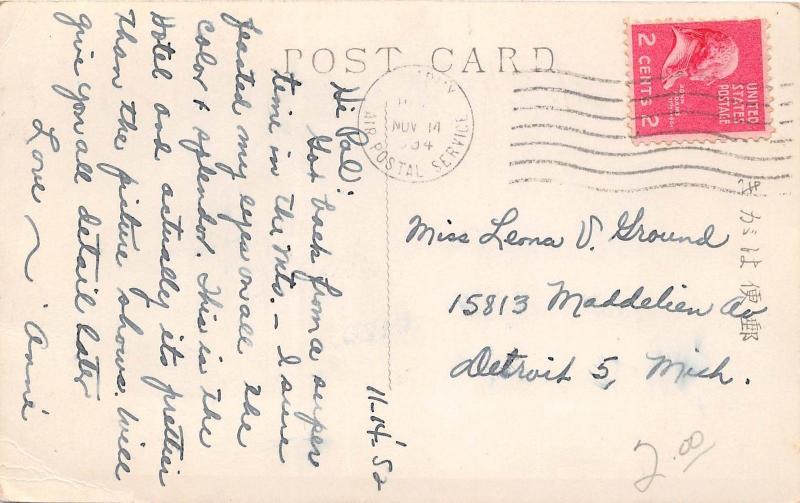 POST CARD
11-14-52
Hi Pal!
Got back from a super
time in the Mts. – I sure
feasted my eyes on all the
color & splendor. This is the
Hotel and actually its prettier
than the picture shows. Will
give you all detail later
Love ~ Anne
AIR POSTAL SERVICE
NOV 14
UNITED
STATES
POSTAGE
2 CENTS 2
Miss Leona V. Ground
15813 Maddelien Av
Detroit 5, Mich.
きがは便郵
2.00